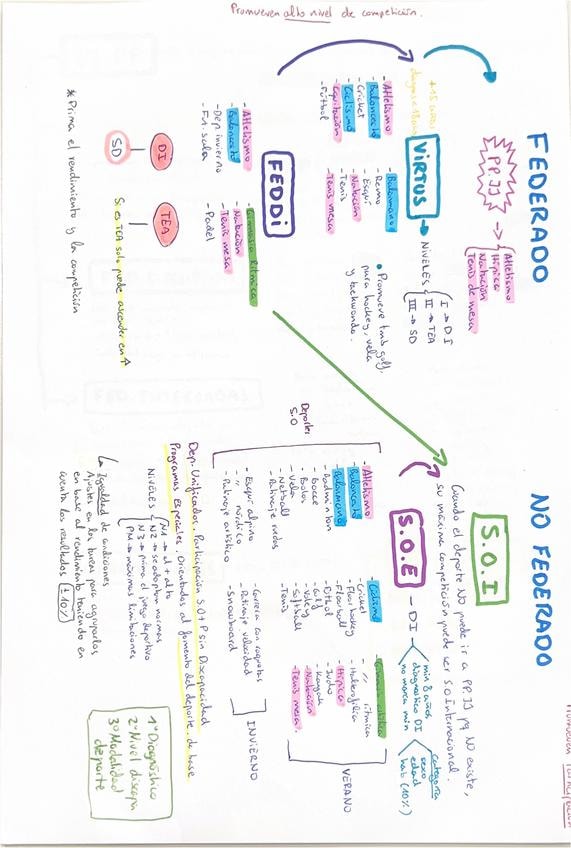 Promueven alto nivel de competición.
FEDERADO
PP.JJ
Atletismo
Natación
Hípica
Tenis de mesa
+15 años
VIRTUS
NIVELES
I → DI
II → TEA
III → SD
- Atletismo
- Baloncesto
- Cricket
- Ciclismo
- Equitación
- Fútbol
- Balonmano
- Remo
- Esquí
- Natación
- Tenis
- Tenis mesa
• Promueve tmb golf,
para hockey, vela
y taekwondo.
FEDDI
- Atletismo
- Baloncesto
- Dep. invierno
- Fut. sala
- Gimnasia Rítmica
- Natación
- Tenis mesa
- Padel
DI
SD
TEA
Si es TEA solo puede ascender en 1
* Prima el rendimiento y la competición
NO FEDERADO
Promueven Participación
S.O.I
Cuando el deporte NO puede ir a PP.JJ pq NO existe,
su máxima competición puede ser S.O Internacional.
S.O.E
- DI
min 8 años
diagnostico DI
no marca min
categoria
sexo
edad
hab (10%)
Deportes
S.O
- Atletismo
- Baloncesto
- Balonmano
- Badminton
- Bocce
- Bolos
- Vela
- Netball
- Patinaje ruedas
- Ciclismo
- Cricket
- Floorball
- Fútbol
- Golf
- Voley
- Softball
- Tenis
- Gimnasia artística
- " rítmica
- Halterofilia
- Hípica
- Judo
- Kayak
- Natación
- Tenis mesa
VERANO
- Esquí alpino
- " nórdico
- Patinaje artístico
- Carrera con raquetas
- Patinaje velocidad
- Snowboard
INVIERNO
Dep. Unificados. Participación S.O + P sin Discapacidad
Programas Especiales. Orientados al fomento del deporte de base
NIVELES
N1 → el + alto
N2 → se adaptan normas
N3 → prima el juego deportivo
PM → máximas limitaciones
↳ Igualdad de condiciones
Ajustes en las tareas para agruparlos
en base al rendimiento teniendo en
cuenta los resultados (±10%)
1º Diagnóstico
2º Nivel discap
3º Modalidad
deporte